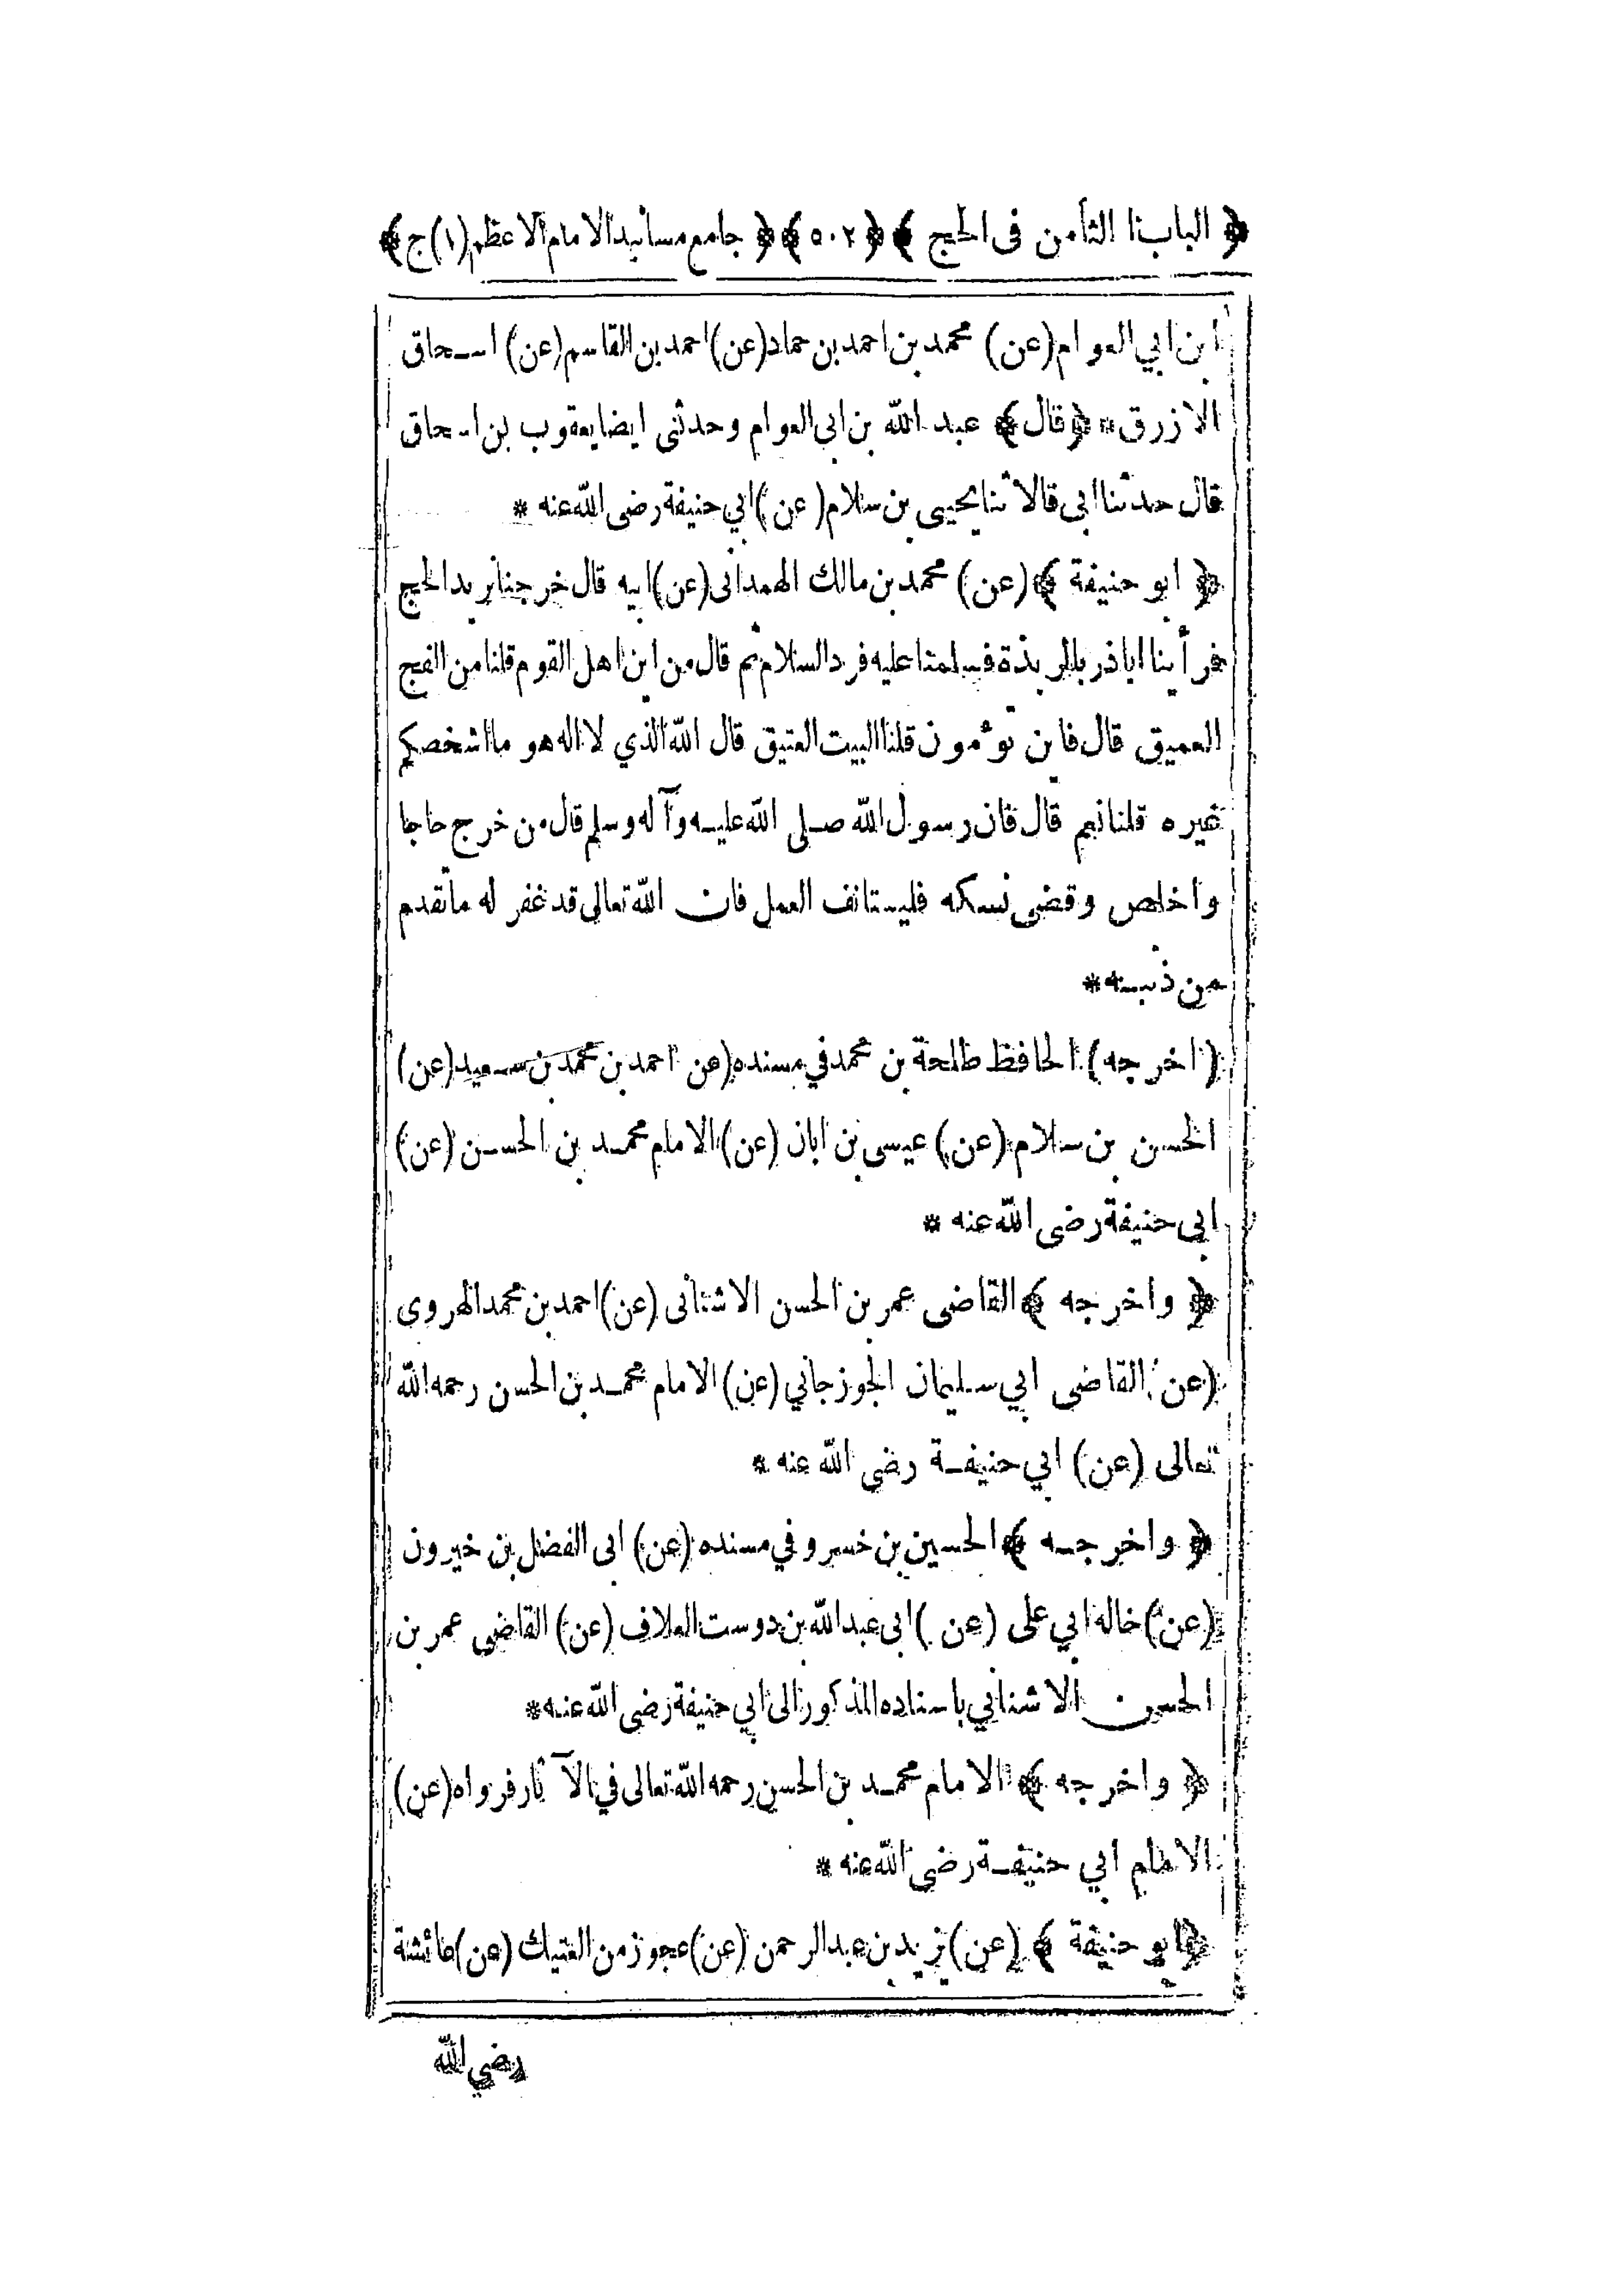 ﴿ الباب الثامن فى الحج ﴾ ﴿ ٥٠٢ ﴾ ﴿ جامع مسانيد الامام الاعظم (١) ج ﴾
ابن ابي العوام (عن) محمد بن احمد بن حماد (عن) احمد بن القاسم (عن) اسحاق
الازرق * ﴿ قال ﴾ عبد الله بن ابى العوام وحدثنى ايضا يعقوب بن اسحاق
قال حدثنا ابى قالا ثنا يحيى بن سلام (عن) ابي حنيفة رضى الله عنه *
﴿ ابو حنيفة ﴾ (عن) محمد بن مالك الهمدانى (عن) ابيه قال خرجنا نريد الحج
فرأينا اباذر بالربذة فسلمنا عليه فرد السلام ثم قال من اين اهل القوم قلنا من الفج
العميق قال فاين تؤمون قلنا البيت العتيق قال الله الذي لا اله هو ما اشخصكم
غيره قلنا نعم قال فان رسول الله صلى الله عليه وآله وسلم قال من خرج حاجا
واخلص وقضى نسكه فليستانف العمل فان الله تعالى قد غفر له ما تقدم
من ذنبه *
(اخرجه) الحافظ طلحة بن محمد في مسنده (عن) احمد بن محمد بن سعيد (عن)
الحسن بن سلام (عن) عيسى بن ابان (عن) الامام محمد بن الحسن (عن)
ابى حنيفة رضى الله عنه *
﴿ واخرجه ﴾ القاضى عمر بن الحسن الاشنانى (عن) احمد بن محمد الهروى
(عن) القاضى ابي سليمان الجوزجاني (عن) الامام محمد بن الحسن رحمه الله
تعالى (عن) ابي حنيفة رضى الله عنه *
﴿ واخرجه ﴾ الحسين بن خسرو في مسنده (عن) ابى الفضل بن خيرون
(عن) خاله ابي على (عن) ابى عبد الله بن دوست العلاف (عن) القاضى عمر بن
الحسن الاشناني باسناده المذكور الى ابي حنيفة رضى الله عنه *
﴿ واخرجه ﴾ الامام محمد بن الحسن رحمه الله تعالى في الآثار فرواه (عن)
الامام ابي حنيفة رضى الله عنه *
﴿ ابو حنيفة ﴾ (عن) يزيد بن عبد الرحمن (عن) عجوز من العتيك (عن) عائشة
رضي الله